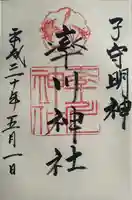 子守明神
率川神社
平成二十年五月一日